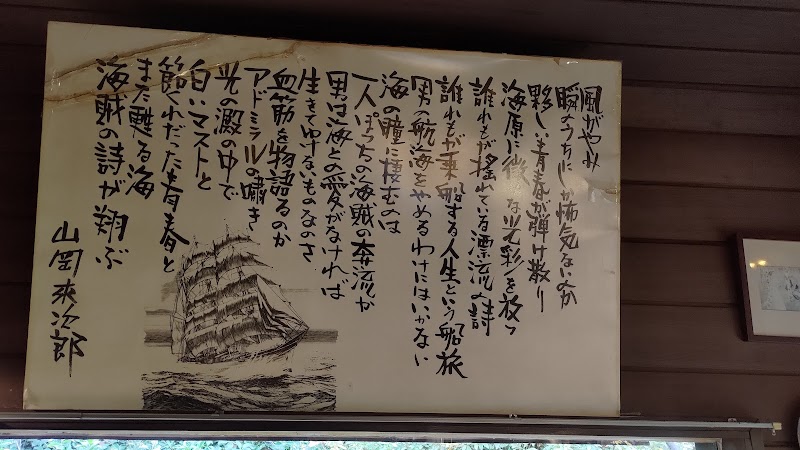 風がやみ
瞬のうちにしか怖気ないのが
夥しい青春が弾け散り
海原に微な光彩を放つ
誰れもが揺れている漂流の詩
誰れもが乗船する人生という船旅
男の航海をやめるわけにはいかない
海の瞳に棲むのは
一人ぽっちの海賊の奔流が
男は海との愛がなければ
生きてゆけないものなのさ
血筋を物語るのか
アドミラルの嘯き
光の澱の中で
白いマストと
飾くれだった青春と
また甦る海
海賊の詩が翔ぶ
山岡爽次郎